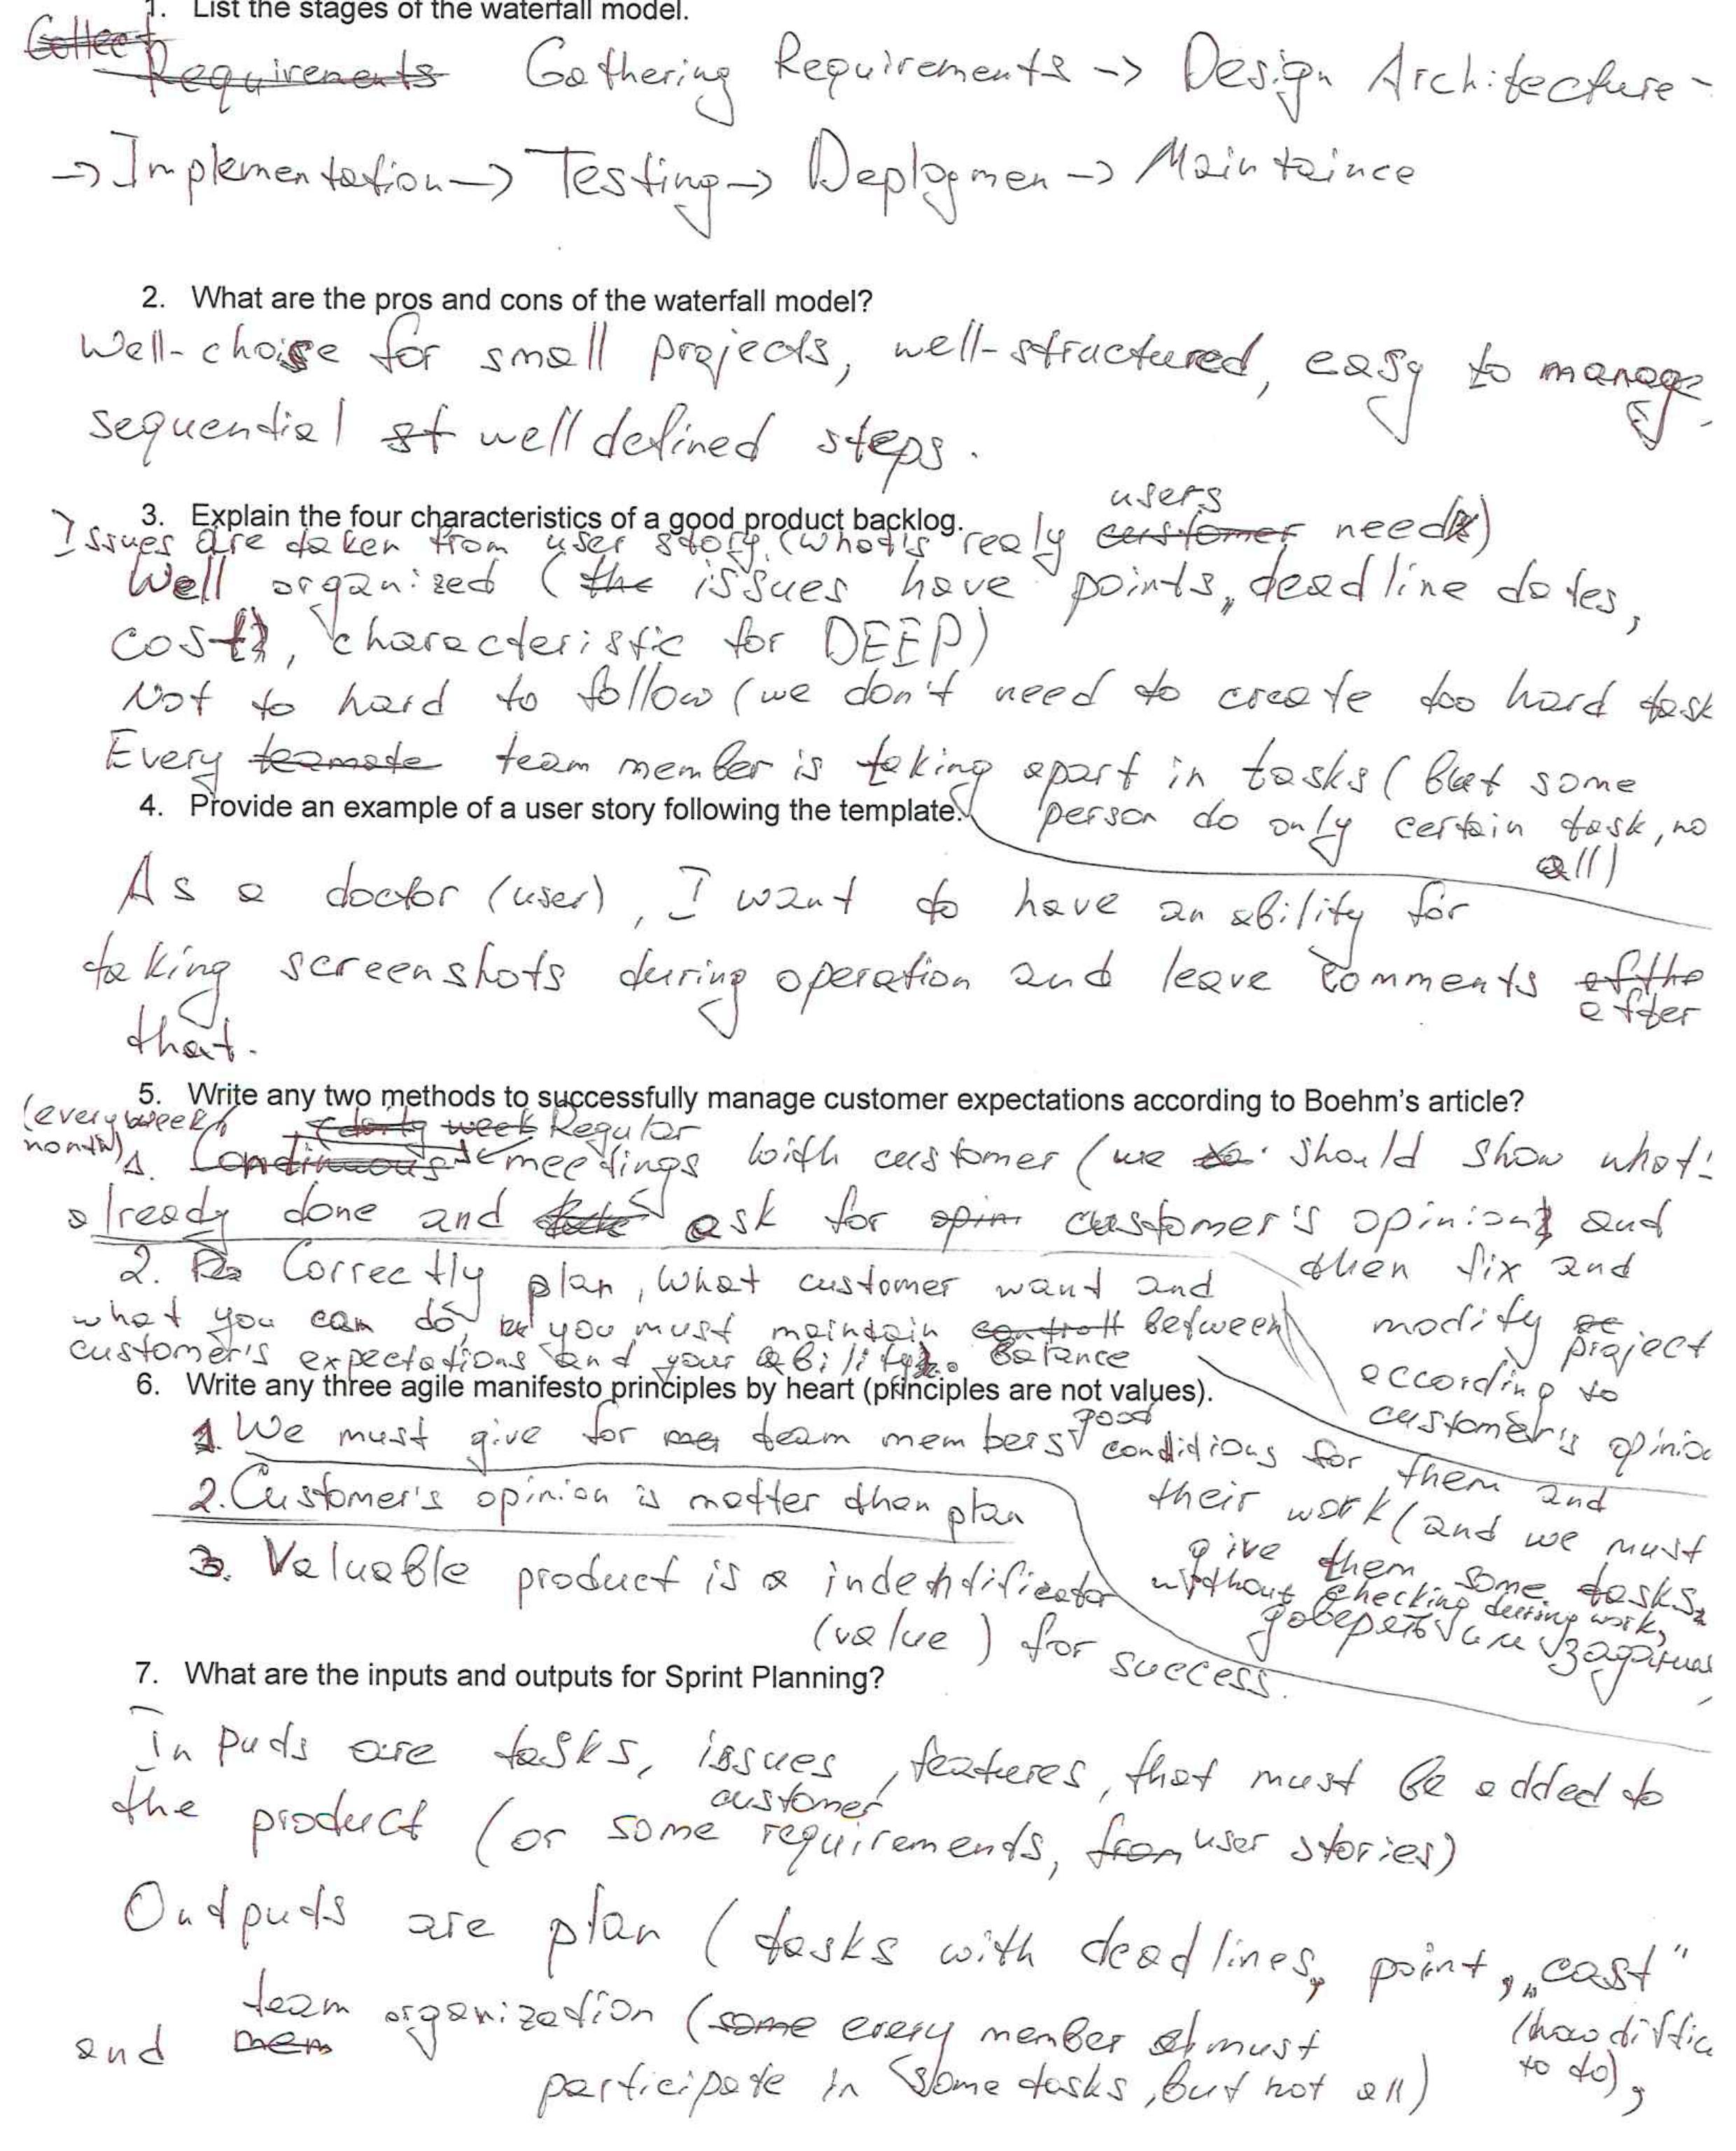 1. List the stages of the waterfall model.
Collect
Requirements Gathering Requirements -> Design Architecture -
-> Implementation -> Testing -> Deploymen -> Maintaince
2. What are the pros and cons of the waterfall model?
Well-choise for small projects, well-structured, easy to manage,
sequential st well defined steps.
3. Explain the four characteristics of a good product backlog.
users
Issues are taken from user story (what's realy customer need)
Well organized (the issues have points, deadline dates,
cost, characteristic for DEEP)
Not to hard to follow (we don't need to create too hard task
Every teamate team member is taking apart in tasks (but some
person do only certain task, no
all)
4. Provide an example of a user story following the template.
As a doctor (user), I want to have an ability for
taking screenshots during operation and leave comments
after
that.
5. Write any two methods to successfully manage customer expectations according to Boehm's article?
(every week
month)
week Regular
1. Continuous meetings with customer (we should show what's
already done and ask for opin customer's opinion and
then fix and
modify project
according to
customer's opinio
2. Correctly plan, what customer want and
what you can do, you must maintain controll between
customer's expectations and your ability. Balance
6. Write any three agile manifesto principles by heart (principles are not values).
1. We must give for team members good conditions for them and
their work (and we must
give them some tasks
without checking during work,
доверять им задания
2. Customer's opinion is matter than plan
3. Valuable product is a indentificator
(value) for success.
7. What are the inputs and outputs for Sprint Planning?
Inputs are tasks, issues, features, that must be added to
customer
the product (or some requirements, from user stories)
Outputs are plan (tasks with deadlines, point, „cost"
(how diffic
to do),
and mem team organization (some every member must
participate in some tasks, but not all)